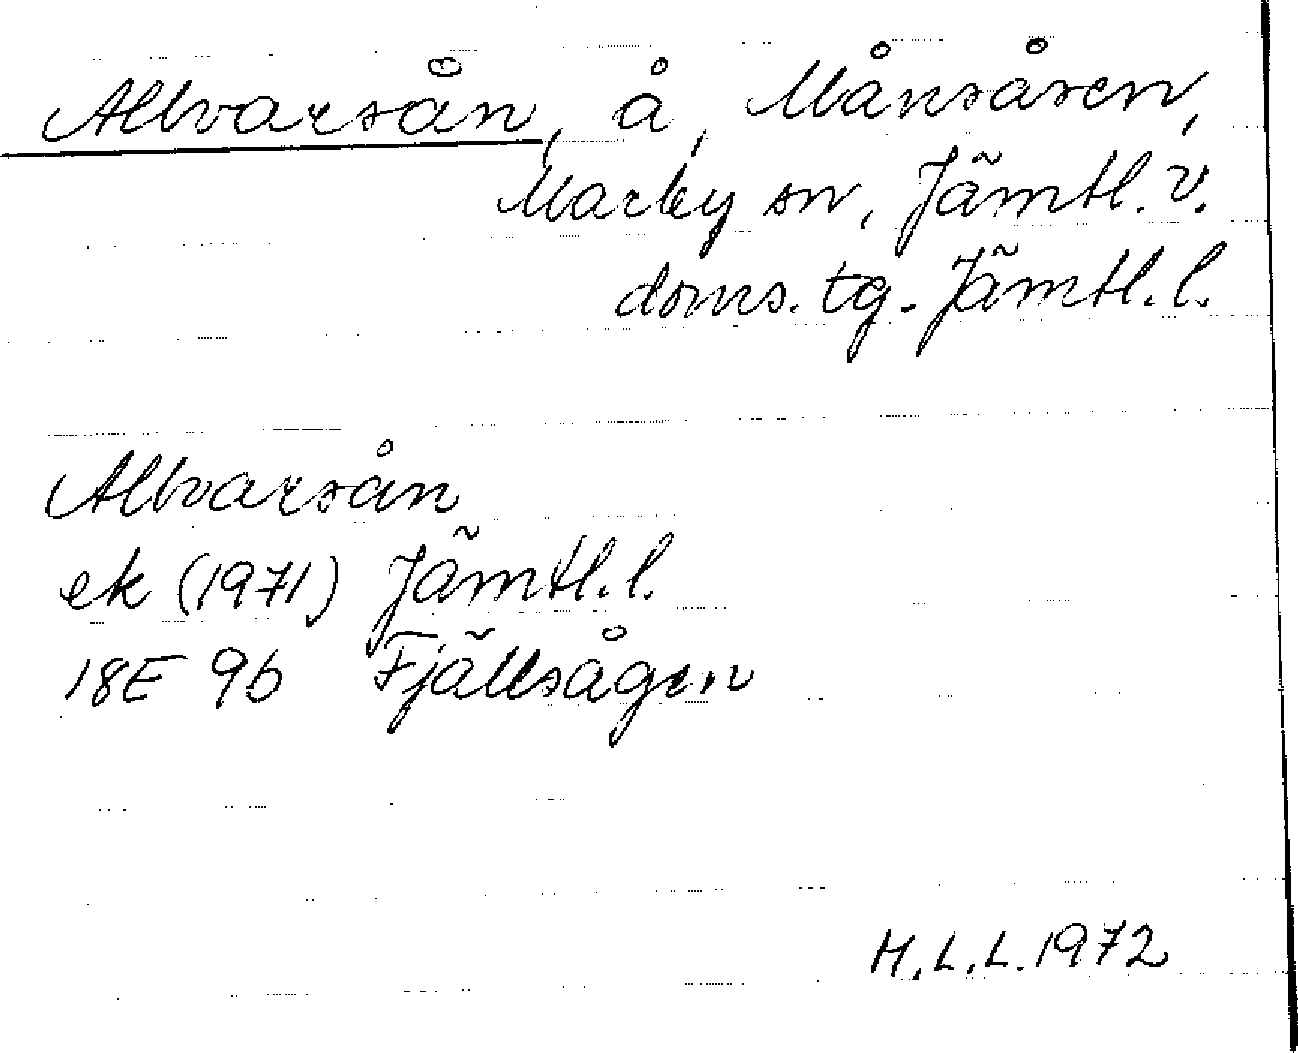 Allvarsån, å, Månsåsen,
Marby sn, Jämtl. v.
doms. tg. Jämtl. l.
Allvarsån
ek (1971) Jämtl. l.
18E 9b Fjällsågen
H.L.L. 1972